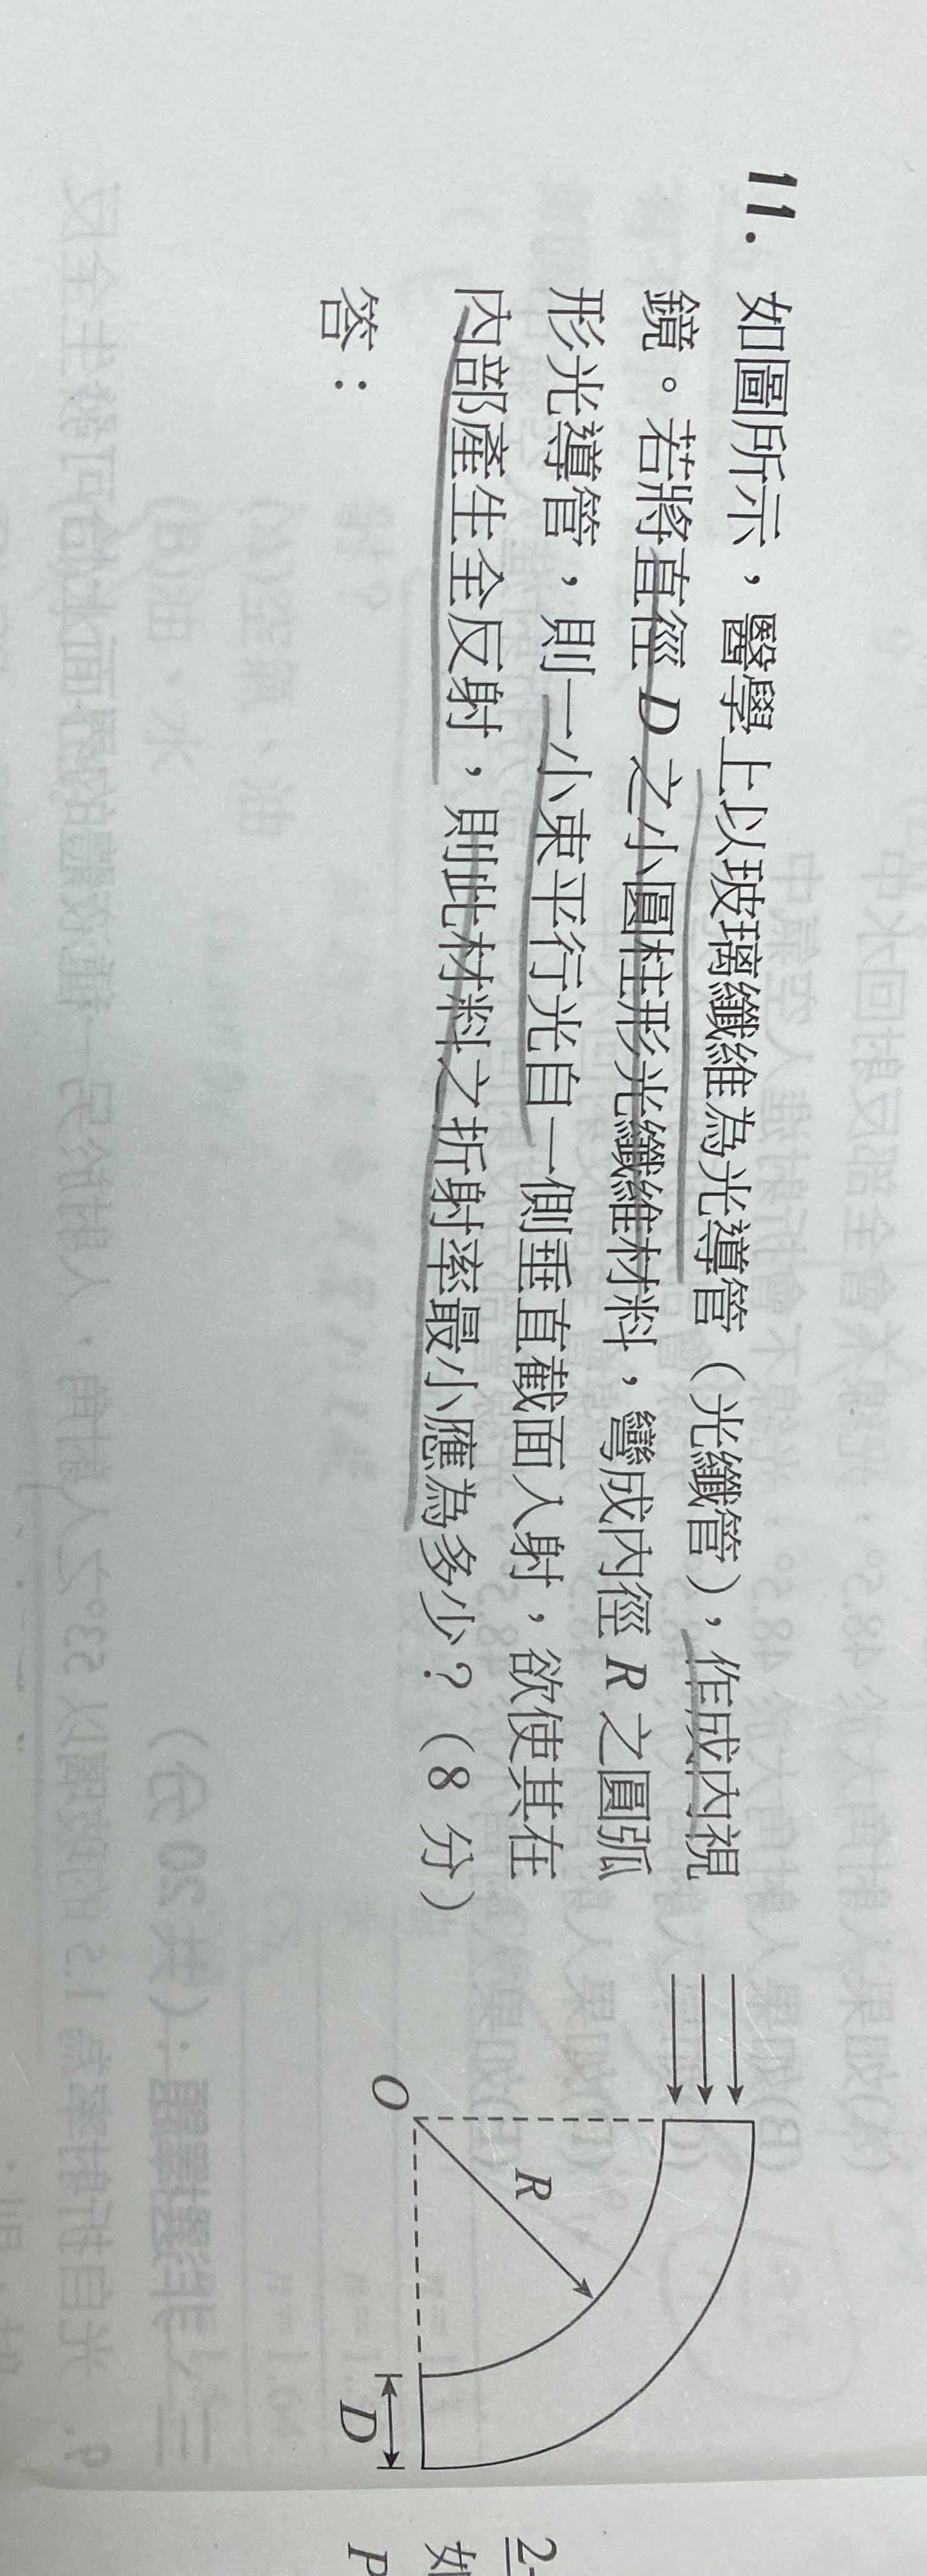 11. 如圖所示，醫學上以玻璃纖維為光導管（光纖管），作成內視
鏡。若將直徑 D 之小圓柱形光纖維材料，彎成內徑 R 之圓弧
形光導管，則一小束平行光自一側垂直截面入射，欲使其在
內部產生全反射，則此材料之折射率最小應為多少？（8 分）
答：
O
R
D
2-
如
P